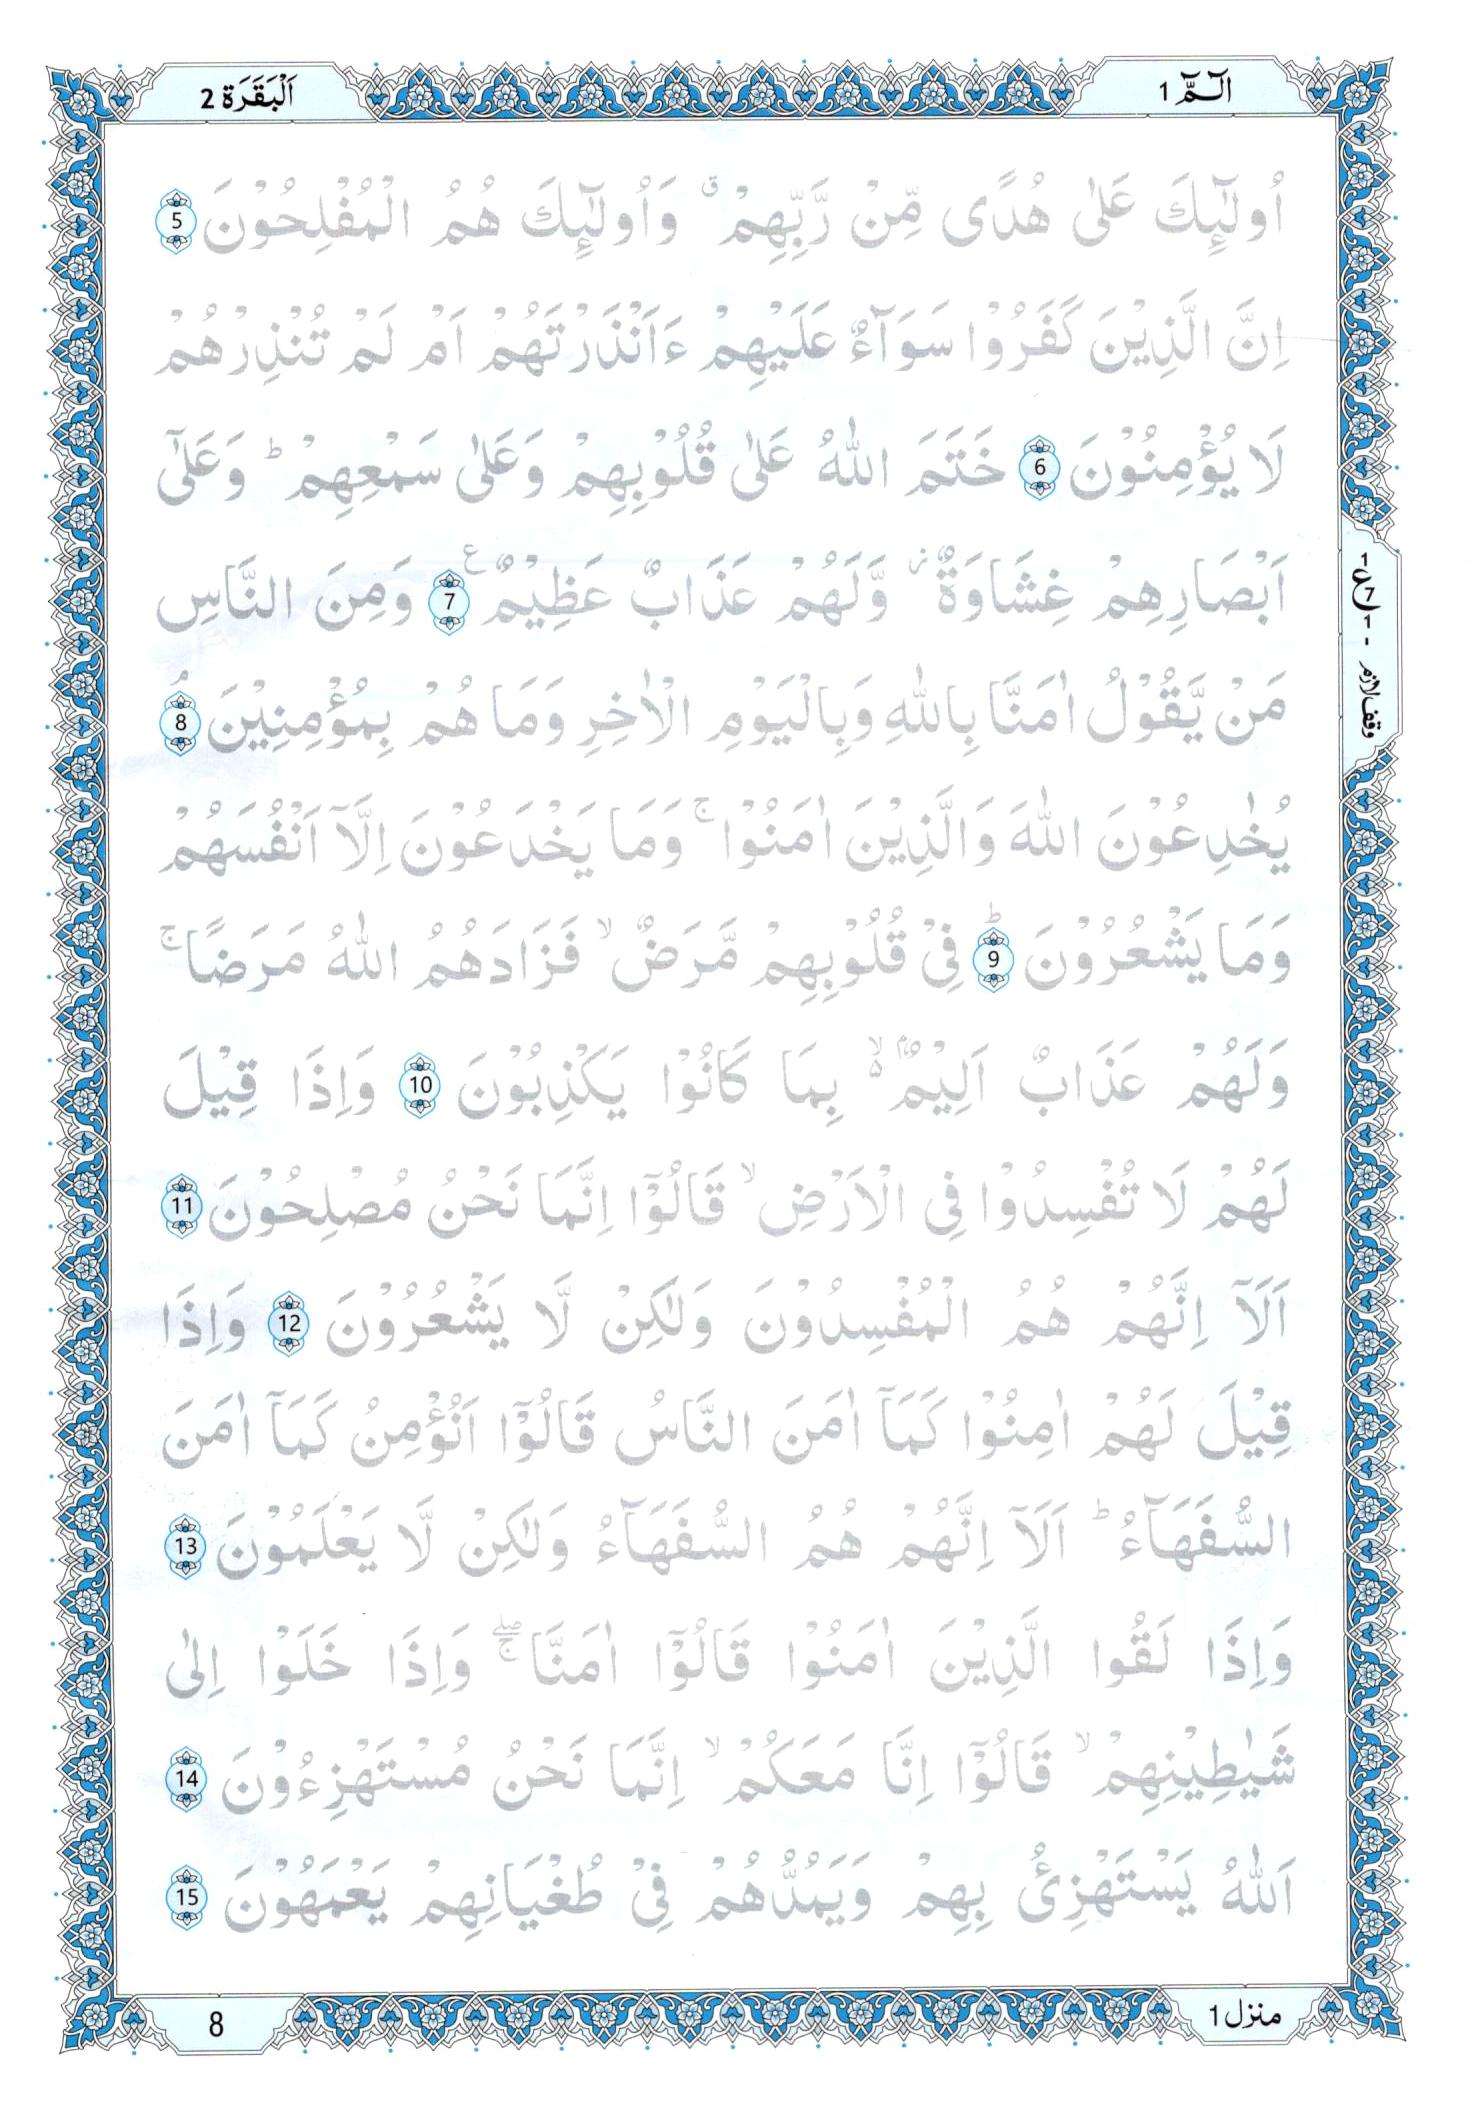 الٓـمّٓ 1
اَلْبَقَرَة 2
اُولٰٓئِكَ عَلٰى هُدًى مِّنْ رَّبِّهِمْ ۗ وَاُولٰٓئِكَ هُمُ الْمُفْلِحُوْنَ 5
اِنَّ الَّذِيْنَ كَفَرُوْا سَوَآءٌ عَلَيْهِمْ ءَاَنْذَرْتَهُمْ اَمْ لَمْ تُنْذِرْهُمْ
لَا يُؤْمِنُوْنَ 6 خَتَمَ اللّٰهُ عَلٰى قُلُوْبِهِمْ وَعَلٰى سَمْعِهِمْ ؕ وَعَلٰٓى
اَبْصَارِهِمْ غِشَاوَةٌ ز وَّلَهُمْ عَذَابٌ عَظِيْمٌ ع 7 وَمِنَ النَّاسِ
مَنْ يَّقُوْلُ اٰمَنَّا بِاللّٰهِ وَبِالْيَوْمِ الْاٰخِرِ وَمَا هُمْ بِمُؤْمِنِيْنَ ۘ 8
يُخٰدِعُوْنَ اللّٰهَ وَالَّذِيْنَ اٰمَنُوْا ۚ وَمَا يَخْدَعُوْنَ اِلَّآ اَنْفُسَهُمْ
وَمَا يَشْعُرُوْنَ ؕ 9 فِيْ قُلُوْبِهِمْ مَّرَضٌ ۙ فَزَادَهُمُ اللّٰهُ مَرَضًا ۚ
وَلَهُمْ عَذَابٌ اَلِيْمٌۢ ۙ۬ بِمَا كَانُوْا يَكْذِبُوْنَ 10 وَاِذَا قِيْلَ
لَهُمْ لَا تُفْسِدُوْا فِي الْاَرْضِ ۙ قَالُوْٓا اِنَّمَا نَحْنُ مُصْلِحُوْنَ 11
اَلَآ اِنَّهُمْ هُمُ الْمُفْسِدُوْنَ وَلٰكِنْ لَّا يَشْعُرُوْنَ 12 وَاِذَا
قِيْلَ لَهُمْ اٰمِنُوْا كَمَآ اٰمَنَ النَّاسُ قَالُوْٓا اَنُؤْمِنُ كَمَآ اٰمَنَ
السُّفَهَآءُ ؕ اَلَآ اِنَّهُمْ هُمُ السُّفَهَآءُ وَلٰكِنْ لَّا يَعْلَمُوْنَ 13
وَاِذَا لَقُوا الَّذِيْنَ اٰمَنُوْا قَالُوْٓا اٰمَنَّا ۖۚ وَاِذَا خَلَوْا اِلٰى
شَيٰطِيْنِهِمْ ۙ قَالُوْٓا اِنَّا مَعَكُمْ ۙ اِنَّمَا نَحْنُ مُسْتَهْزِءُوْنَ 14
اَللّٰهُ يَسْتَهْزِئُ بِهِمْ وَيَمُدُّهُمْ فِيْ طُغْيَانِهِمْ يَعْمَهُوْنَ 15
1
ع
7
1
وقف لازم
منزل 1
8